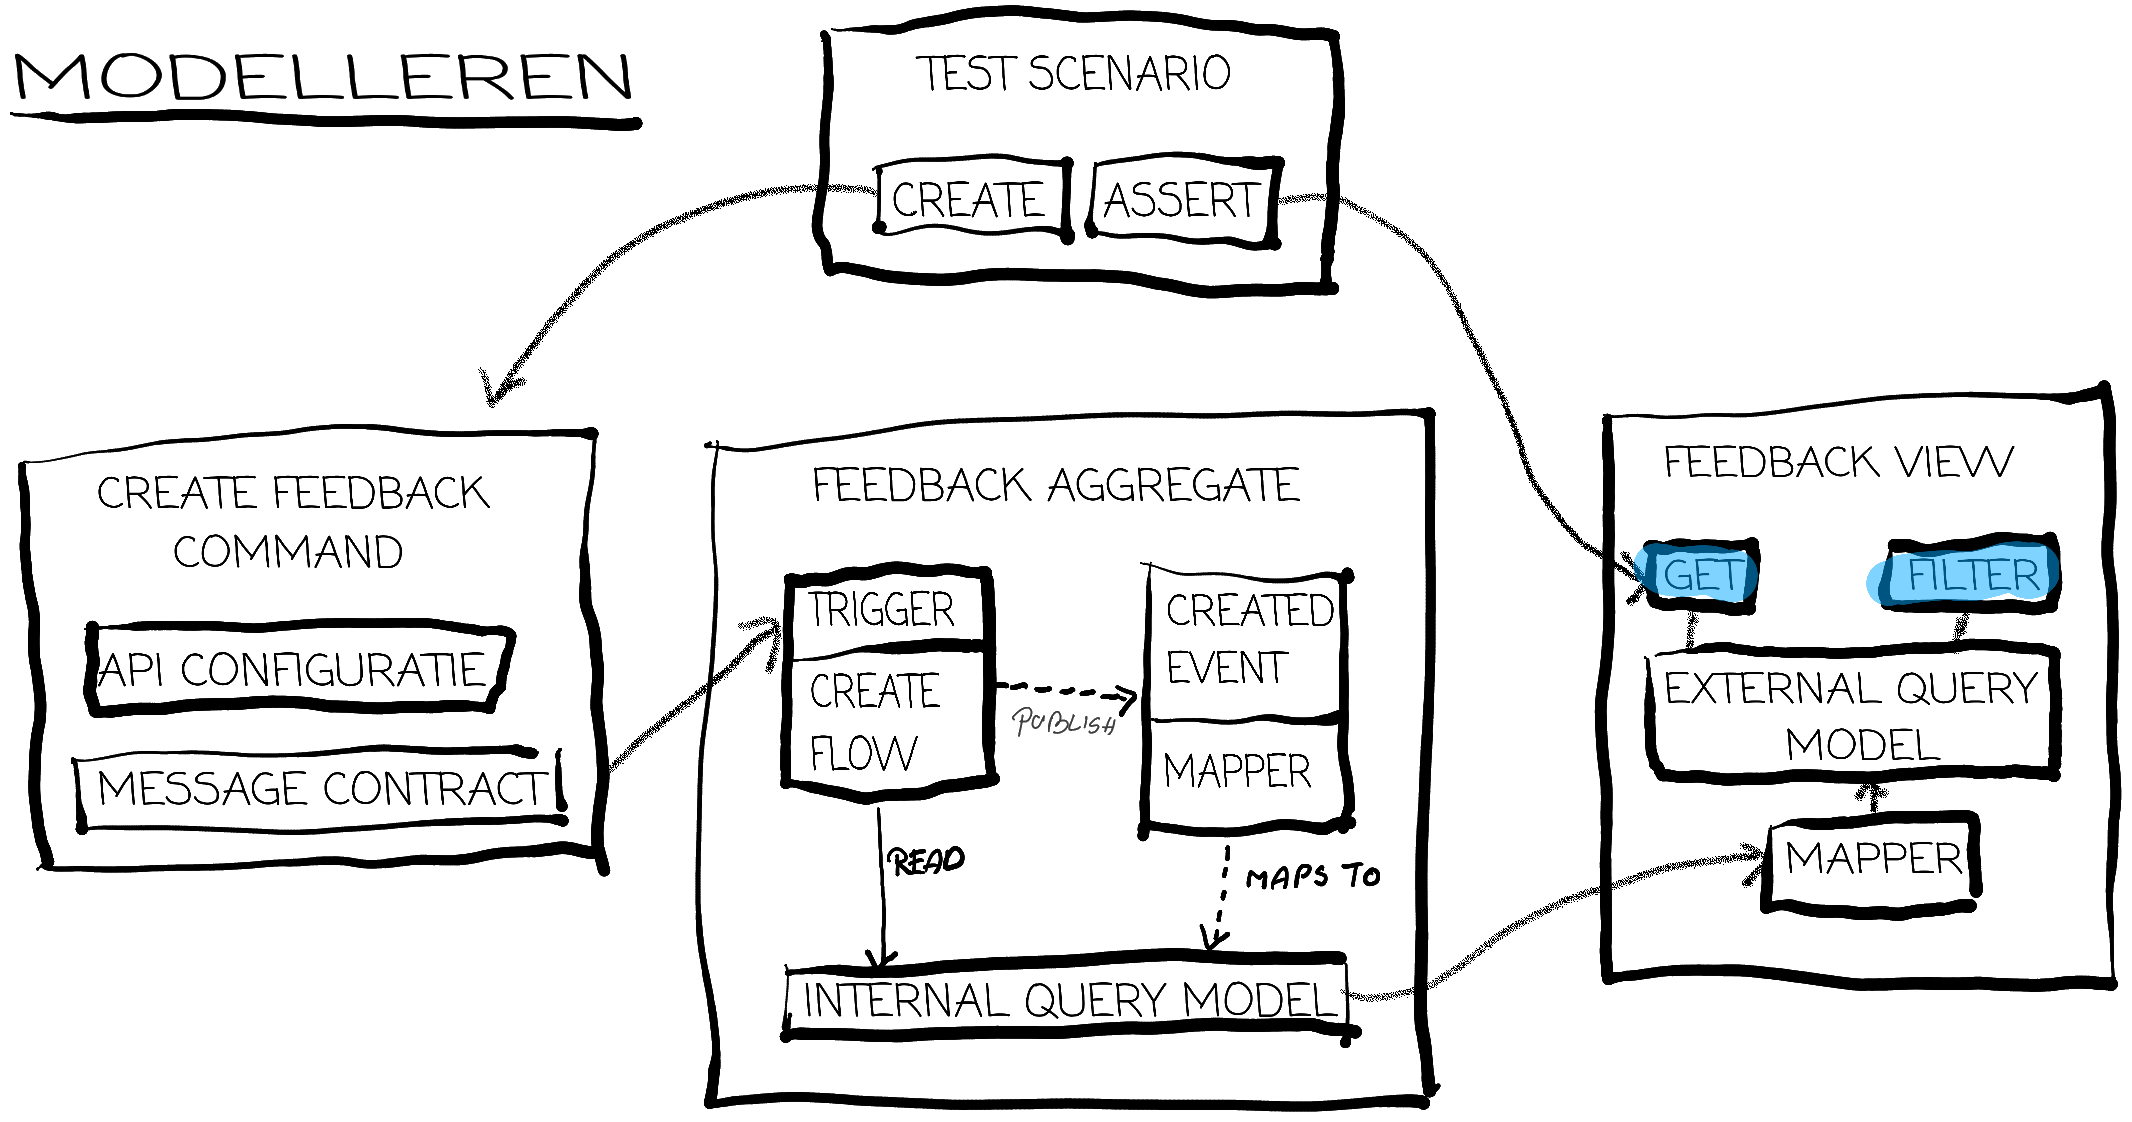 MODELLEREN
TEST SCENARIO
CREATE
ASSERT
CREATE FEEDBACK
COMMAND
API CONFIGURATIE
MESSAGE CONTRACT
FEEDBACK AGGREGATE
TRIGGER
CREATE
FLOW
PUBLISH
CREATED
EVENT
MAPPER
READ
MAPS TO
INTERNAL QUERY MODEL
FEEDBACK VIEW
GET
FILTER
EXTERNAL QUERY
MODEL
MAPPER